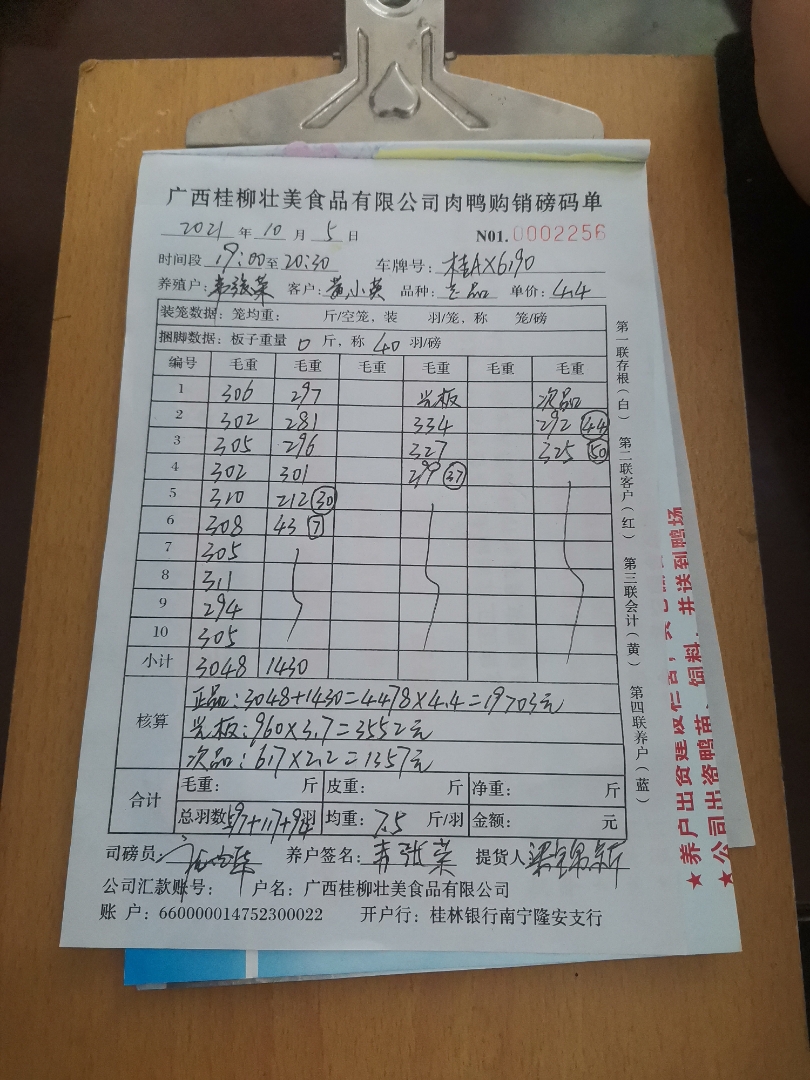 广西桂柳壮美食品有限公司肉鸭购销磅码单
2021 年 10 月 5 日 N01. 0002256
时间段 19:00至20:30 车牌号: 桂AX6190
养殖户: 韦张荣 客户: 黄小英 品种: 正品 单价: 4.4
装笼数据: 笼均重: 斤/空笼, 装 羽/笼, 称 笼/磅
捆脚数据: 板子重量 0 斤, 称 40 羽/磅
编号 毛重 毛重 毛重 毛重 毛重 毛重
1 306 297 光板 次品
2 302 281 334 292 44
3 305 296 327 325 50
4 302 301 299 37
5 310 212 30
6 308 43 7
7 305
8 311
9 294
10 305
小计 3048 1430
核算
正品: 3048+1430=4478×4.4=19703元
光板: 960×3.7=3552元
次品: 617×2.2=1357元
合计
毛重: 斤 皮重: 斤 净重: 斤
总羽数 597+117+94 羽 均重: 7.5 斤/羽 金额: 元
司磅员: 养户签名: 韦张荣 提货人
公司汇款账号: 户名: 广西桂柳壮美食品有限公司
账 户: 660000014752300022 开户行: 桂林银行南宁隆安支行
第一联存根(白) 第二联客户(红) 第三联会计(黄) 第四联养户(蓝)
★养户出资建设栏舍,
★公司出资鸭苗、饲料、并送到鸭场